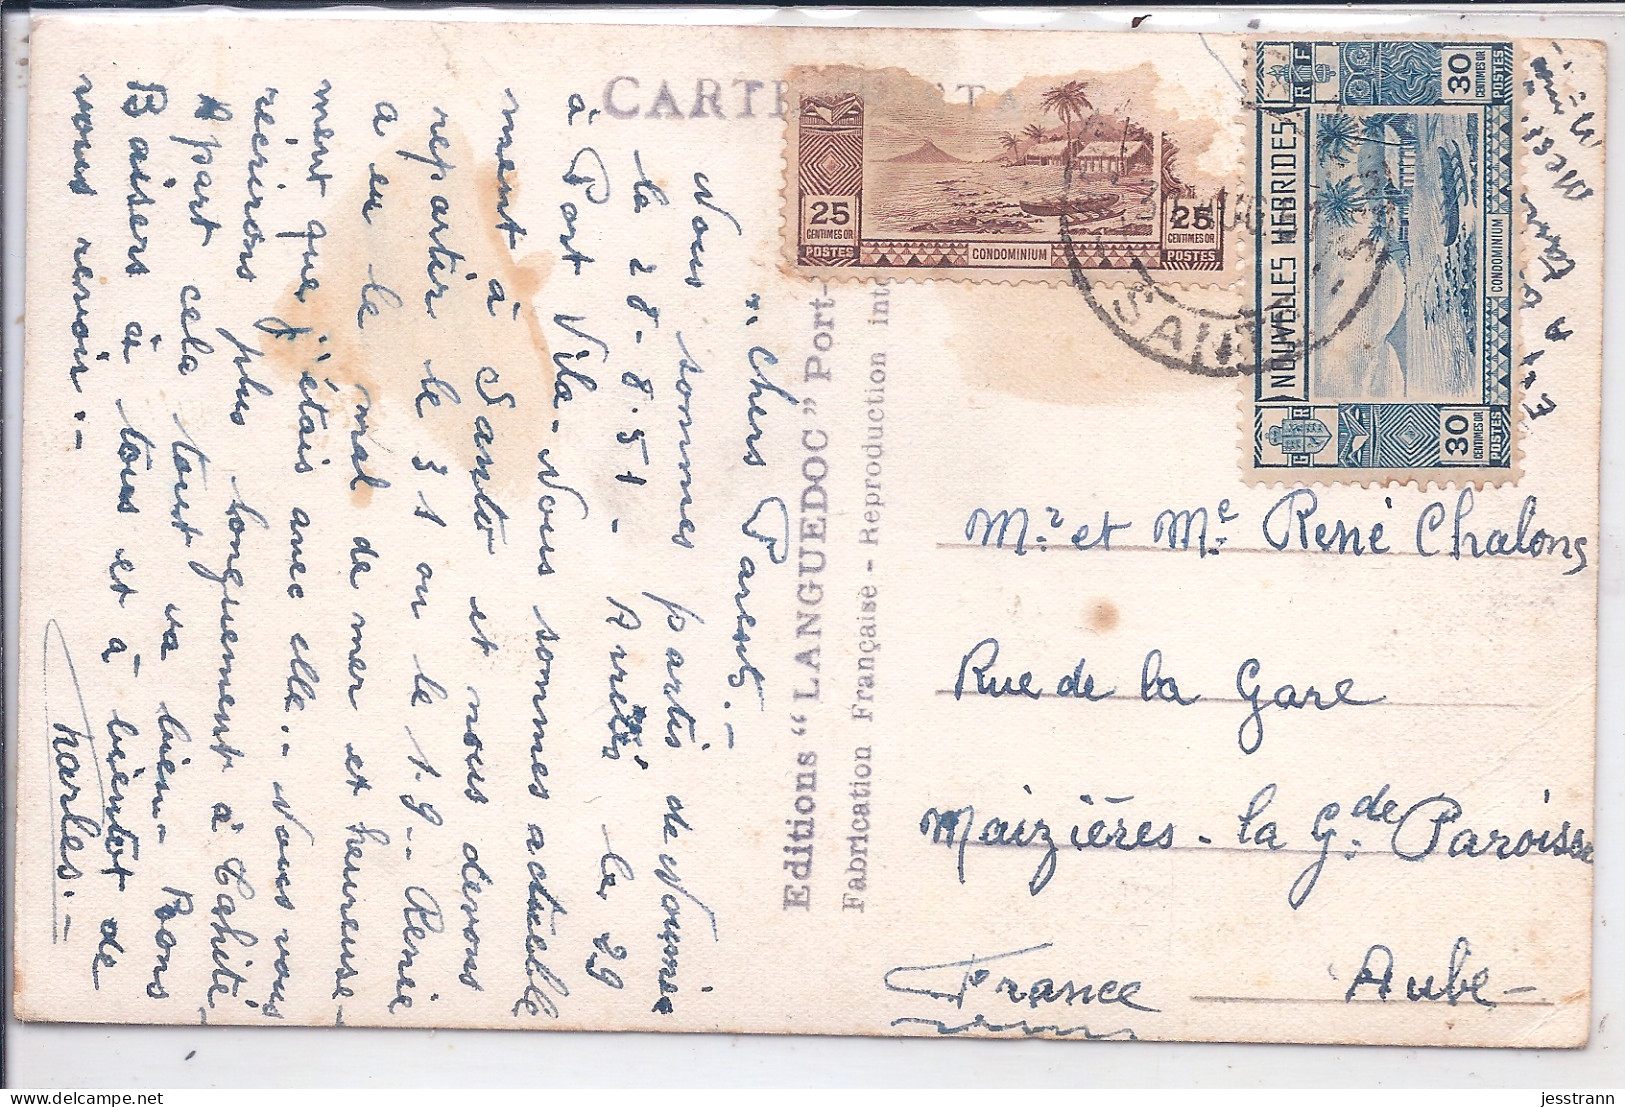 CARTE POSTA
" Chers Parents.-
Nous sommes partis de Nouméa
le 28-8.51 - Arrivés le 29
à Port Vila - Nous sommes actuelle
ment à Santo et nous devons
repartir le 31 ou le 1.9-. Renée
a eu le mal de mer et heureuse-
ment que j'étais avec elle.- Nous vous
récrirons plus longuement à Tahiti-
A part cela tout va bien- Bons
Baisers à tous et à bientôt de
vous revoir.-
Charles.-
Editions "LANGUEDOC" Port-
Fabrication Française - Reproduction inte
25 25
CENTIMES OR CENTIMES OR
POSTES CONDOMINIUM POSTES
RF
30
CENTIMES OR
POSTES
NOUVELLES HEBRIDES
CONDOMINIUM
GR
30
CENTIMES OR
POSTES
SANTO
Mr. et Me. René Chalons
Rue de la Gare
Maizières - la Gde Paroisse
Aube -
France
jesstrann